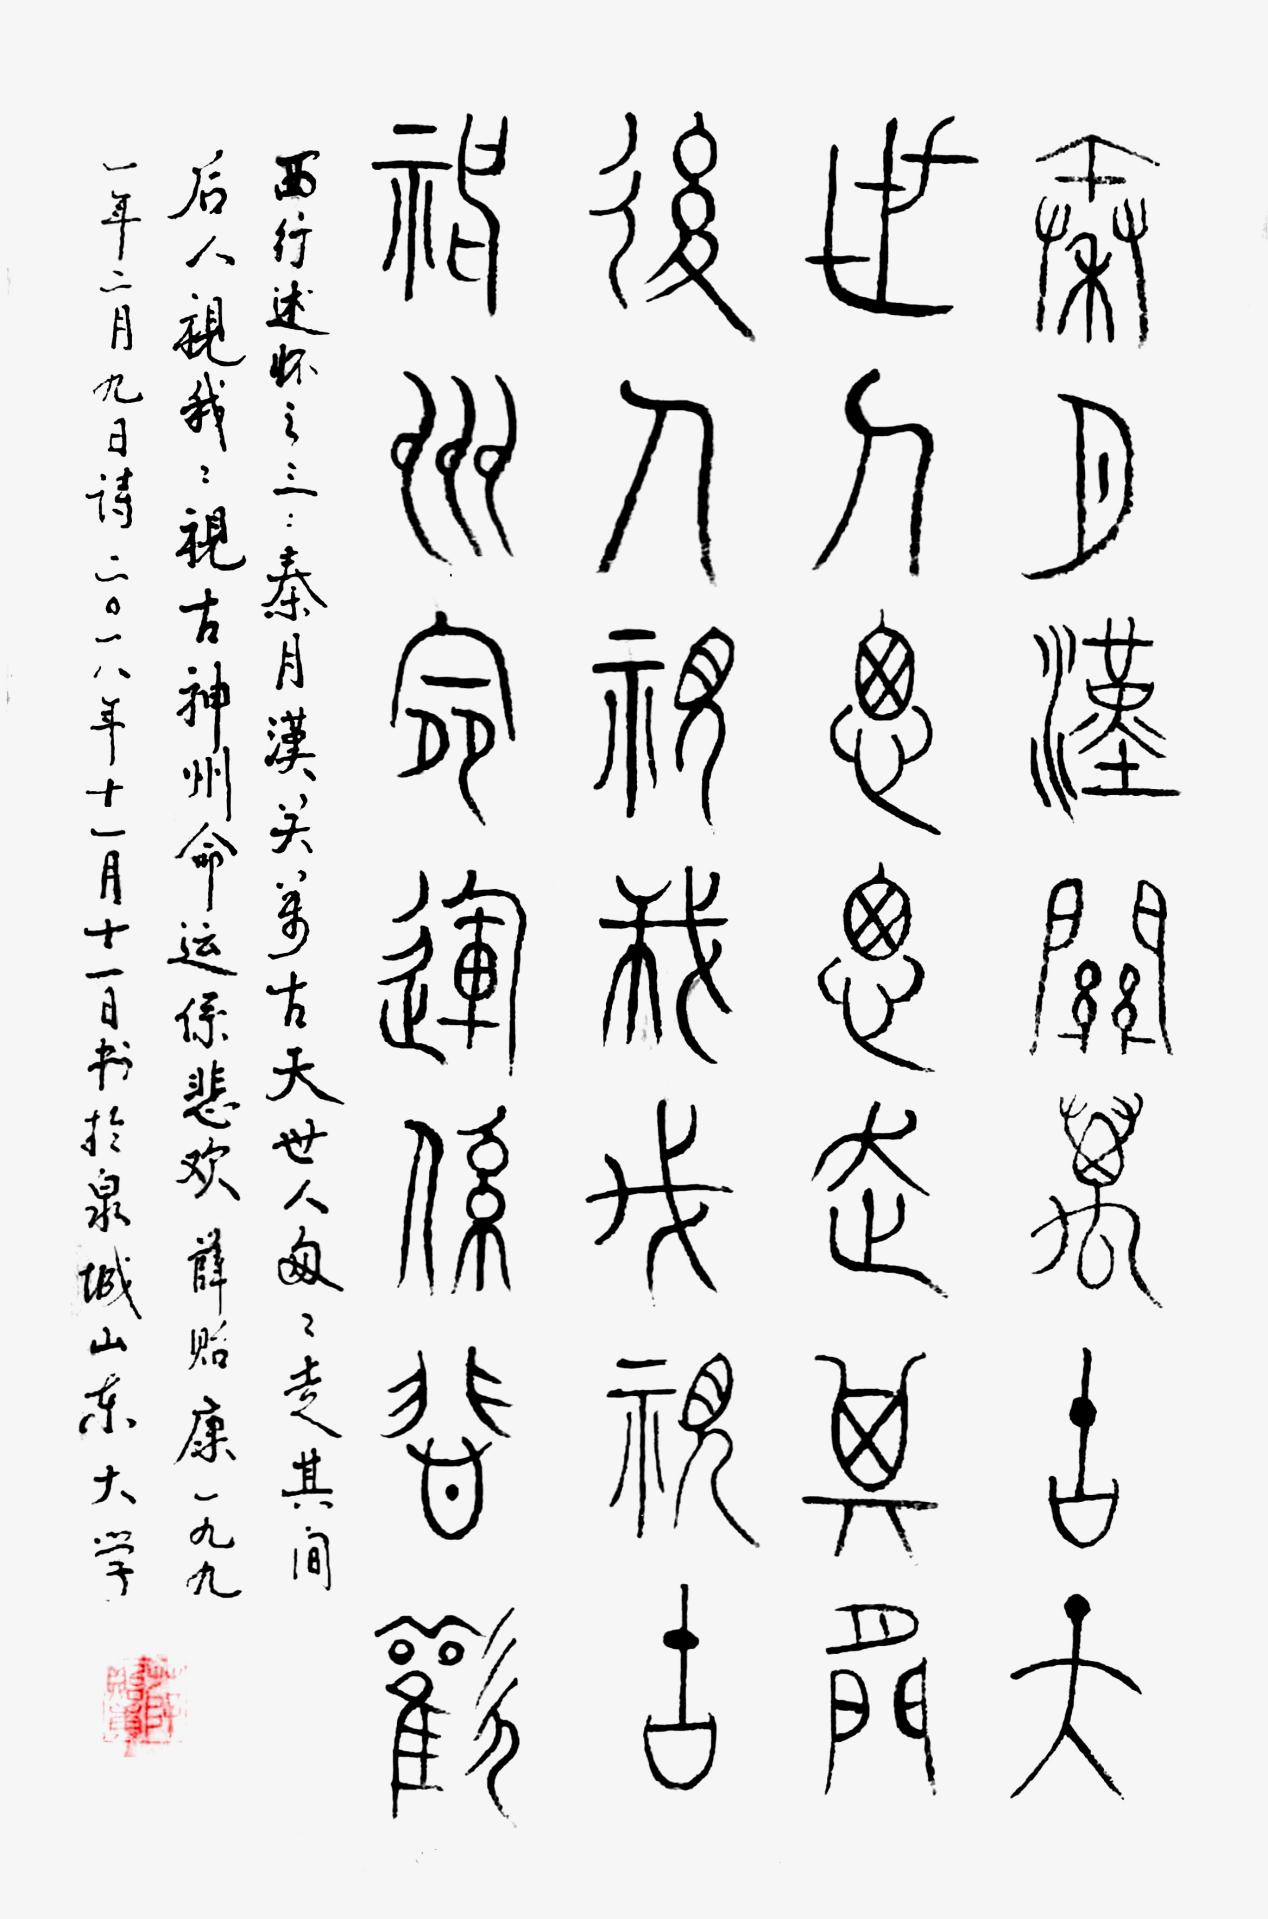 秦月漢關萬古天
世人悤悤走其間
後人視我我視古
神州命運係悲歡
西行述怀之三：秦月漢关万古天世人匆〻走其间
后人視我〻視古神州命运係悲欢 薛贻康一九九
一年二月九日诗二〇一八年十一月十一日书於泉城山东大学